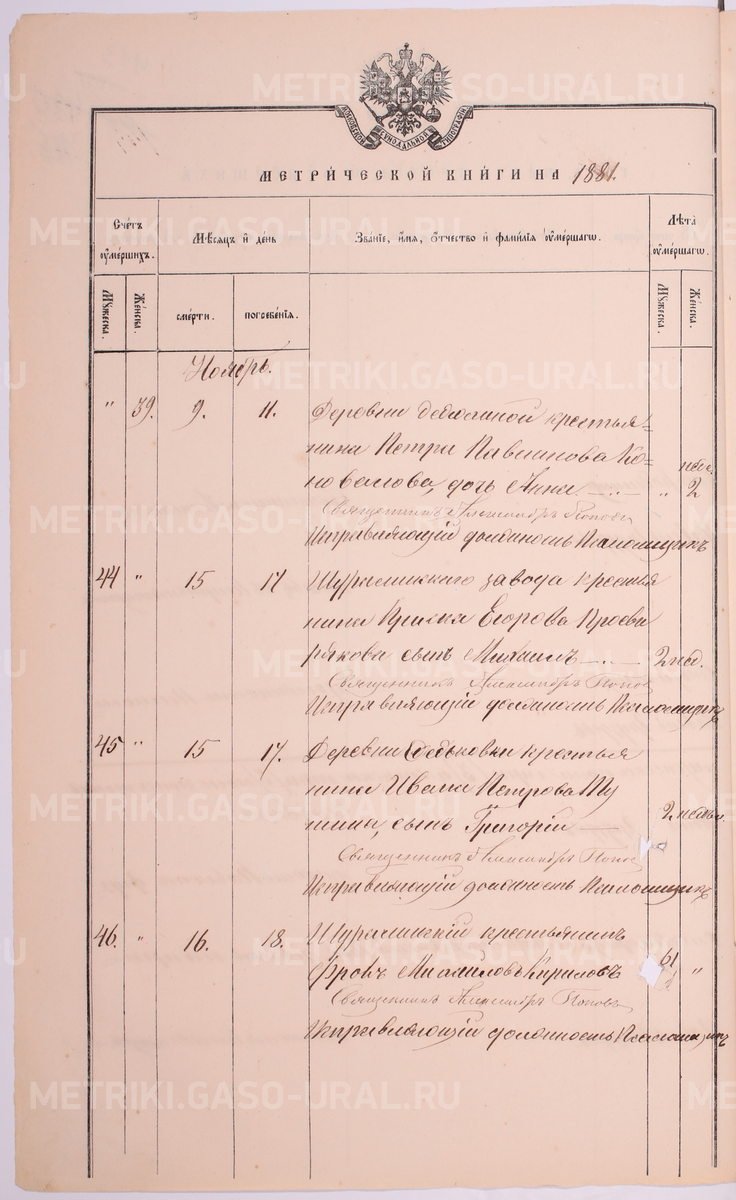 МОСКОВСКОЙ СѴНОДАЛЬНОЙ ТИПОГРАФІИ
МЕТРИ́ЧЕСКОЙ КНИ́ГИ НА 1881.
Сче́тъ ᲂу҆ме́ршихъ.
Мѣ́сяцъ и҆ де́нь
Зва́нїе, и҆́мя, ѻ҆́тчество и҆ фами́лїѧ ᲂу҆ме́ршагѡ.
Лѣ́та ᲂу҆ме́ршагѡ.
Мꙋ́жеска.
Же́нска.
сме́рти.
погребе́нїѧ.
Мꙋ́жеска.
Же́нска.
Ноябрь.
" 39. 9. 11. Деревни крестья-
нина Петра Павлинова Ко-
новалова, дочь Анна " 2 нед.
Священникъ Александръ Поповъ
Исправляющій должность Псаломщика
44 " 15 17 Шуралинскаго завода крестья
нина Егорова Просви
рякова сынъ Михаилъ 2 нед.
Священникъ Александръ Поповъ
Исправляющій должность Псаломщика
45 " 15 17. Деревни крестья
нина Ивана Петрова
сынъ Григорій 2 недѣли.
Священникъ Александръ Попов
Исправляющій должность Псаломщика
46. " 16. 18. Шуралинскій крестьянинъ
Фролъ Михайловъ Кириловъ 61 "
Священникъ Александръ Поповъ
Исправляющій должность
METRIKI.GASO-URAL.RU